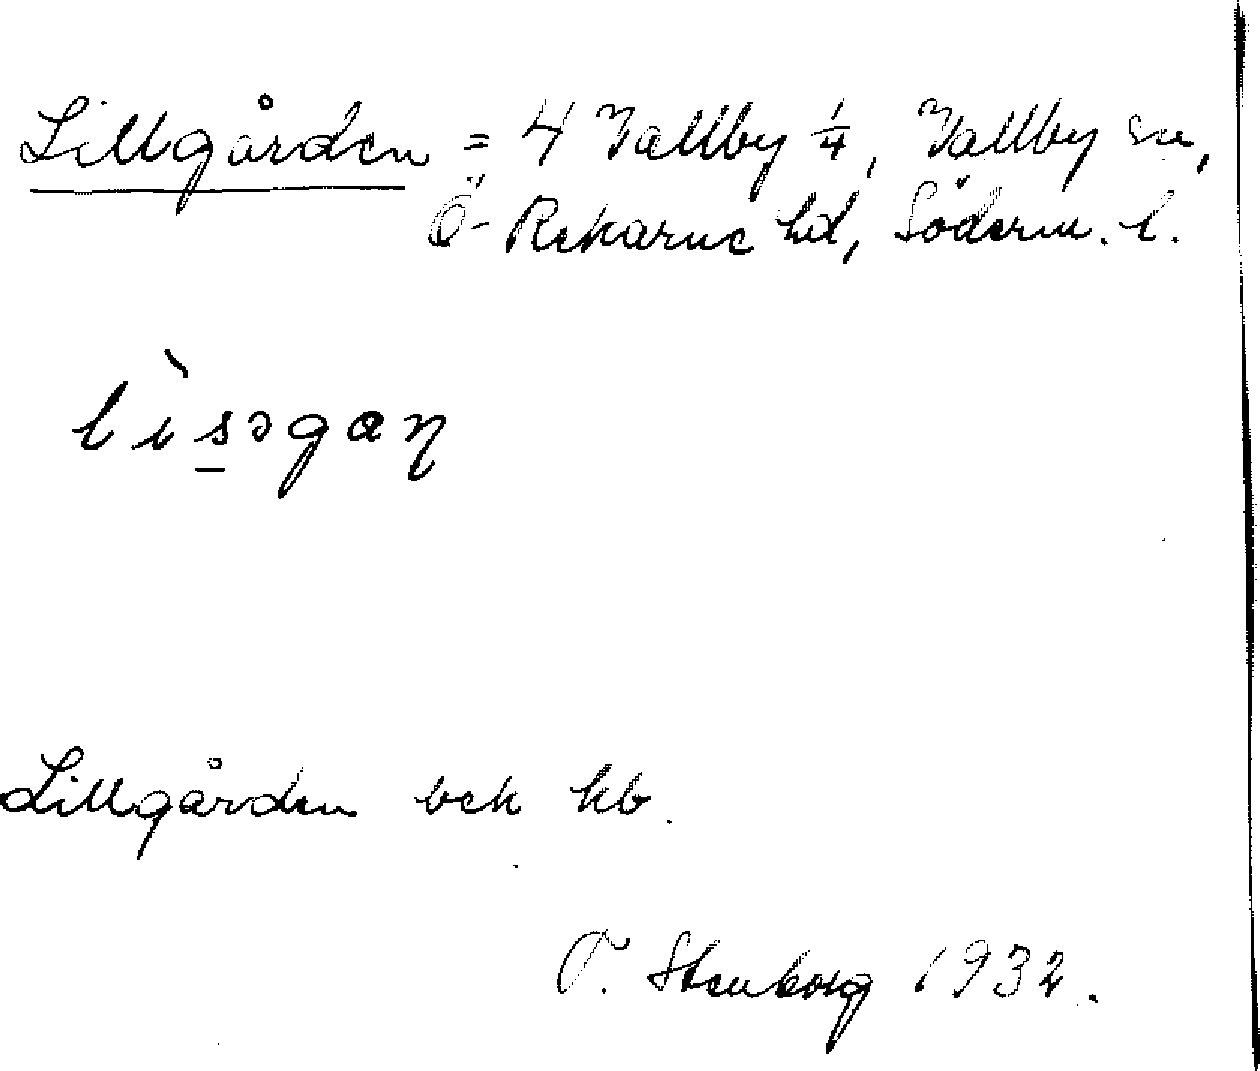 Lillgården = 4 Vallby 1/4, Vallby sn,
Ö- Rekarne hd, Söderm. l.
lìs̲ɔgaŋ
Lillgården bek kb.
O. Stenborg 1932.